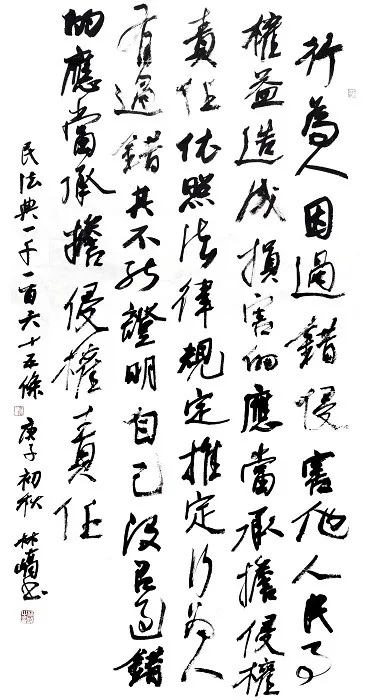 行為人因過錯侵害他人民事
權益造成損害的應當承擔侵權
責任依照法律規定推定行为人
有過錯其不能證明自己沒有過錯
的應當承擔侵權責任
民法典一千一百六十五條 庚子初秋 林嶠书